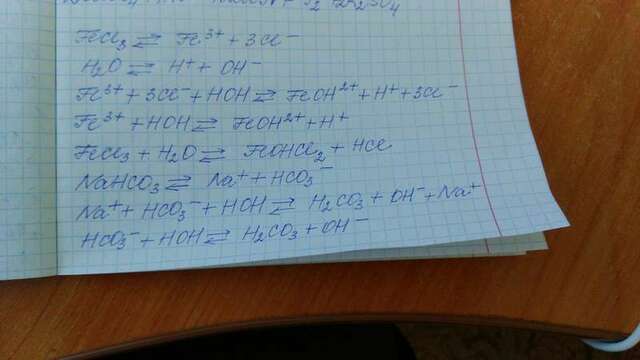 FeCl₃ ⇄ Fe³⁺ + 3Cl⁻
H₂O ⇄ H⁺ + OH⁻
Fe³⁺ + 3Cl⁻ + HOH ⇄ FeOH²⁺ + H⁺ + 3Cl⁻
Fe³⁺ + HOH ⇄ FeOH²⁺ + H⁺
FeCl₃ + H₂O ⇄ FeOHCl₂ + HCl
NaHCO₃ ⇄ Na⁺ + HCO₃⁻
Na⁺ + HCO₃⁻ + HOH ⇄ H₂CO₃ + OH⁻ + Na⁺
HCO₃⁻ + HOH ⇄ H₂CO₃ + OH⁻